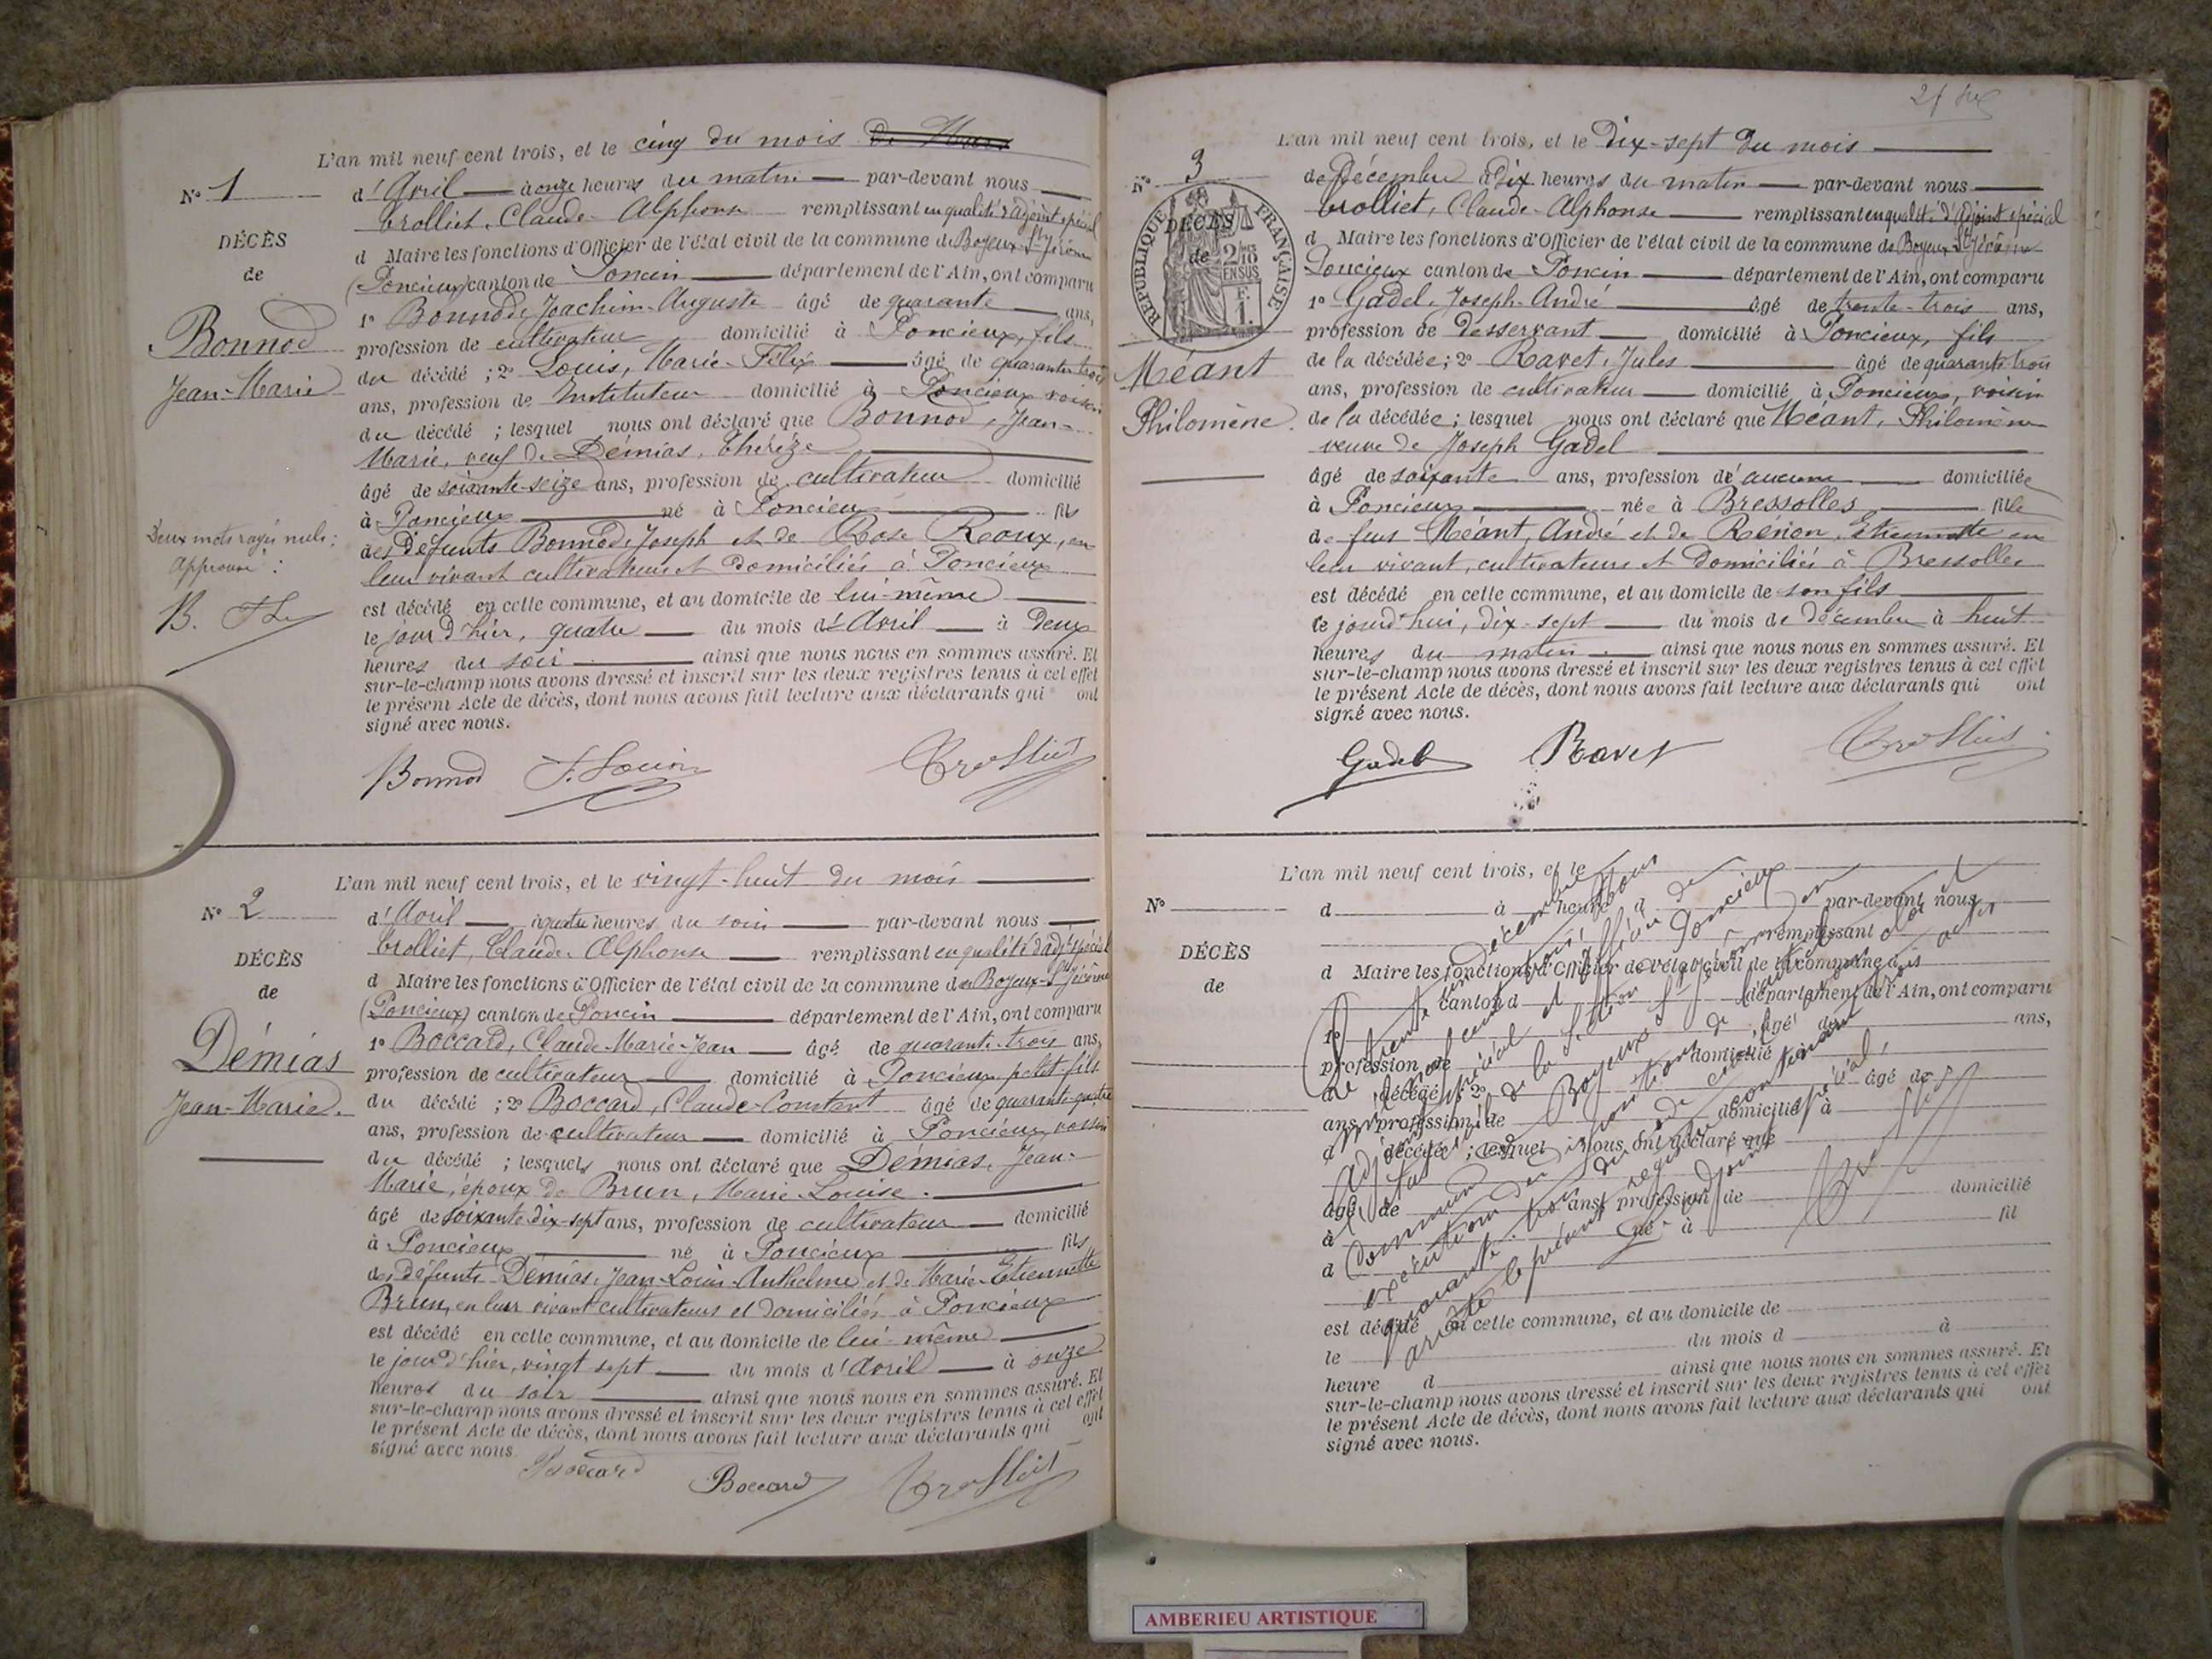 L'an mil neuf cent trois, et le cinq du mois
N° 1
d'Avril à onze heures du matin par-devant nous
Trolliet, Claude-Alphonse remplissant en qualité d'adjoint spécial
DÉCÈS
d Maire les fonctions d'Officier de l'état civil de la commune de Boyeux-St-Jérôme
de
(Poncieux) canton de Poncin département de l'Ain, ont comparu
1° Bonnod, Joachim-Auguste âgé de quarante ans,
Bonnod
profession de cultivateur domicilié à Poncieux, fils
du décédé ; 2° Louis, Marie-Félix âgé de quarante-trois
Jean-Marie
ans, profession de Instituteur domicilié à Poncieux voisin
du décédé ; lesquel nous ont déclaré que Bonnod, Jean-
Marie, veuf de Démias, Thérèze
âgé de soixante-seize ans, profession de cultivateur domicilié
à Poncieux né à Poncieux fils
Deux mots rayés nuls :
des défunts Bonnod, Joseph et de Rose Reoux, en
approuvé :
leur vivant cultivateurs et domiciliés à Poncieux
B.
est décédé en cette commune, et au domicile de lui-même
le jour d'hier, quatre du mois d'Avril à deux
heures du soir ainsi que nous nous en sommes assuré. Et
sur-le-champ nous avons dressé et inscrit sur les deux registres tenus à cet effet
le présent Acte de décès, dont nous avons fait lecture aux déclarants qui ont
signé avec nous.
Bonnod F. Louis Trolliet
L'an mil neuf cent trois, et le vingt-huit du mois
N° 2
d'Avril à quatre heures du soir par-devant nous
Trolliet, Claude-Alphonse remplissant en qualité d'adjt spécial
DÉCÈS
d Maire les fonctions d'Officier de l'état civil de la commune de Boyeux-St-Jérôme
de
(Poncieux) canton de Poncin département de l'Ain, ont comparu
1° Boccard, Claude-Marie-Jean âgé de quarante-trois ans,
Démias
profession de cultivateur domicilié à Poncieux petit-fils
Jean-Marie.
du décédé ; 2° Boccard, Claude-Constant âgé de quarante-quatre
ans, profession de cultivateur domicilié à Poncieux, voisin
du décédé ; lesquels nous ont déclaré que Démias, Jean-
Marie, époux de Brun, Marie-Louise.
âgé de soixante-dix-sept ans, profession de cultivateur domicilié
à Poncieux né à Poncieux fils
des défunts Démias, Jean-Louis-Anthelme et de Marie-Etiennette
Brun, en leur vivant cultivateurs et domiciliés à Poncieux
est décédé en cette commune, et au domicile de lui-même
le jour d'hier, vingt sept du mois d'Avril à onze
heures du soir ainsi que nous nous en sommes assuré. Et
sur-le-champ nous avons dressé et inscrit sur les deux registres tenus à cet effet
le présent Acte de décès, dont nous avons fait lecture aux déclarants qui ont
signé avec nous.
Boccard Boccard Trolliet
L'an mil neuf cent trois, et le Dix-sept du mois
N° 3
de Décembre à dix heures du matin par-devant nous
Trolliet, Claude-Alphonse remplissant en qualité d'adjoint spécial
RÉPUBLIQUE FRANÇAISE
DÉCÈS
de
EN SUS
d Maire les fonctions d'Officier de l'état civil de la commune de Boyeux-St-Jérôme
Poncieux canton de Poncin département de l'Ain, ont comparu
1° Gadel, Joseph-André âgé de trente-trois ans,
profession de desservant domicilié à Poncieux, fils
Méant
de la décédée ; 2° Ravet, Jules âgé de quarante-trois
ans, profession de cultivateur domicilié à Poncieux, voisin
Philomène.
de la décédée ; lesquel nous ont déclaré que Méant, Philomène
veuve de Joseph Gadel
âgé de soixante ans, profession d'aucune domiciliée
à Poncieux née à Bressolles fille
de feus Méant, André et de Renon, Etiennette en
leur vivant, cultivateurs et domiciliés à Bressolles
est décédé en cette commune, et au domicile de son fils
ce jourd'hui, dix-sept du mois de décembre à huit
heures du matin ainsi que nous nous en sommes assuré. Et
sur-le-champ nous avons dressé et inscrit sur les deux registres tenus à cet effet
le présent Acte de décès, dont nous avons fait lecture aux déclarants qui ont
signé avec nous.
Gadel Ravet Trolliet
L'an mil neuf cent trois, et le
N°
d à heure d par-devant nous
remplissant
DÉCÈS
d Maire les fonctions d'Officier de l'état civil de la commune d
de
canton d département de l'Ain, ont comparu
1° âgé de ans,
profession de domicilié
d décédé ; 2° âgé de
ans, profession de domicilié à
d décédé ; lesquel nous ont déclaré que
âgé de ans, profession de domicilié
à né à fil
d
est décédé en cette commune, et au domicile de
le du mois d à
heure d ainsi que nous nous en sommes assuré. Et
sur-le-champ nous avons dressé et inscrit sur les deux registres tenus à cet effet
le présent Acte de décès, dont nous avons fait lecture aux déclarants qui ont
signé avec nous.
AMBERIEU ARTISTIQUE